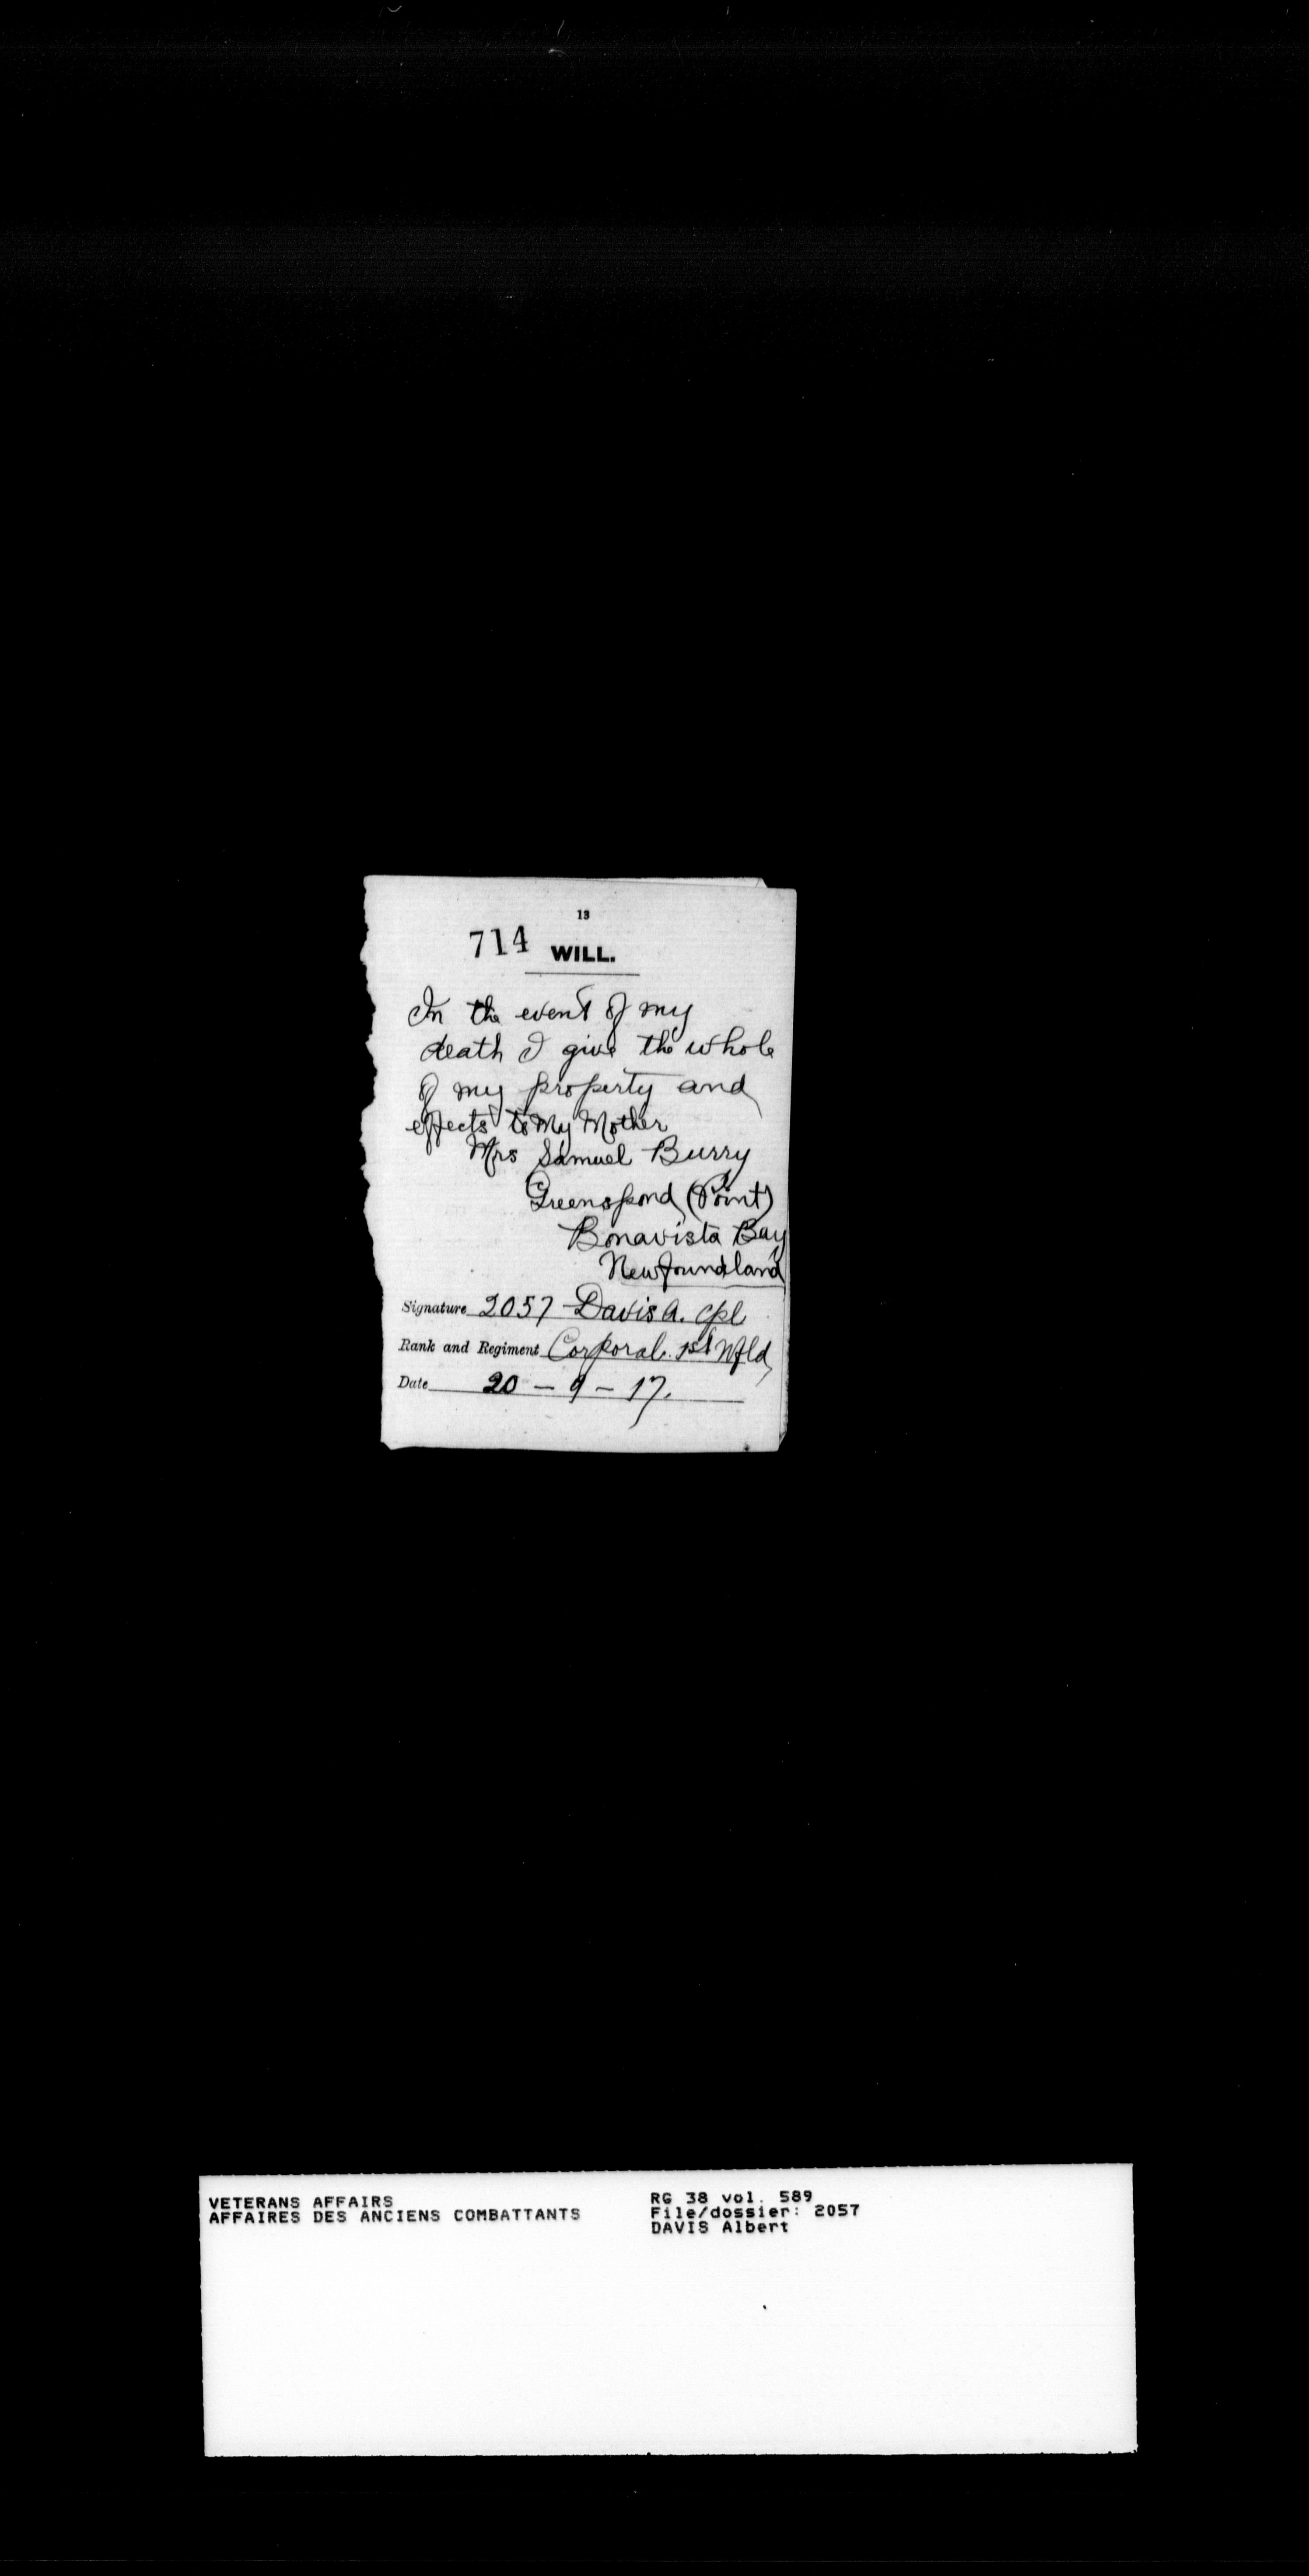 13
714 WILL.
In the event of my
death I give the whole
of my property and
effects to My Mother
Mrs Samuel Burry
Greenspond (Point)
Bonavista Bay
Newfoundland
Signature 2057 Davis A. Cpl
Rank and Regiment Corporal. 1st Nfld
Date 20 - 9 - 17.
VETERANS AFFAIRS
AFFAIRES DES ANCIENS COMBATTANTS
RG 38 vol. 589
File/dossier: 2057
DAVIS Albert